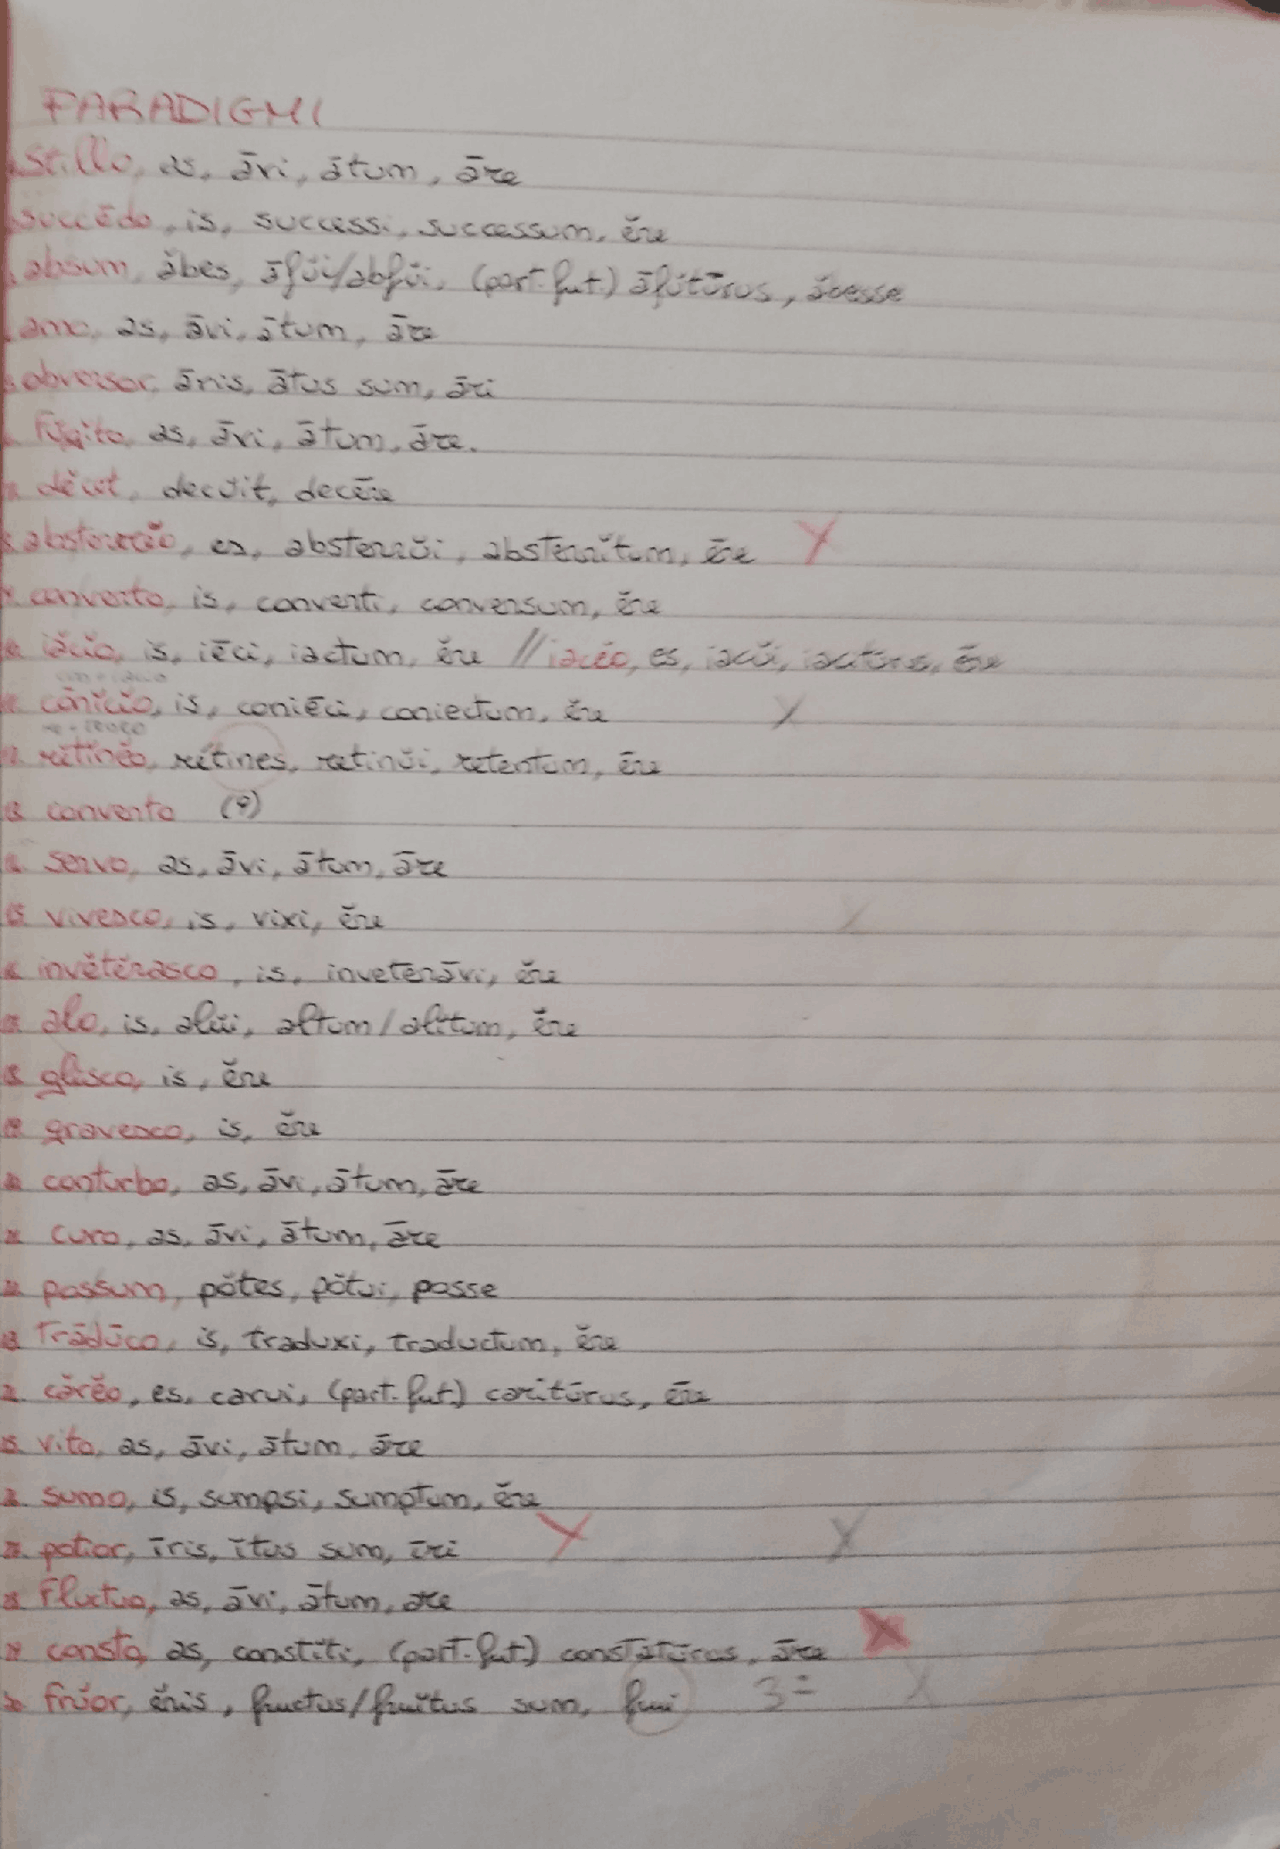 PARADIGMI
stillo, as, āvi, ātum, āre
succēdo, is, successi, successum, ĕre
absum, ăbes, āfŭi/abfŭi, (part. fut.) āfŭtūrus, ăbesse
amo, as, āvi, ātum, āre
obversor, āris, ātus sum, āri
fŭgito, as, āvi, ātum, āre.
dĕcet, decŭit, decēre
absterrĕo, es, absterrŭi, absterrĭtum, ēre
converto, is, converti, conversum, ĕre
iăcĭo, is, iēci, iactum, ĕre // iacĕo, es, iacŭi, iacitūrus, ēre
cum + iacio
cōnĭcĭo, is, coniēci, coniectum, ĕre
re +
rĕtĭnĕo, rétines, retinŭi, retentum, ēre
convento (?)
servo, as, āvi, ātum, āre
vivesco, is, vixi, ĕre
invĕtĕrasco, is, inveterāvi, ĕre
alo, is, alŭi, altum/alĭtum, ĕre
glisco, is, ĕre
gravesco, is, ĕre
conturbo, as, āvi, ātum, āre
curo, as, āvi, ātum, āre
possum, pŏtes, pŏtui, posse
trādūco, is, traduxi, traductum, ĕre
cărĕo, es, carui, (part. fut.) caritūrus, ēre
vito, as, āvi, ātum, āre
sumo, is, sumpsi, sumptum, ĕre
potior, īris, ītus sum, īri
fluctuo, as, āvi, ātum, are
consto, as, constĭti, (part. fut.) constātūrus, āre
frŭor, ĕris, fructus/fruĭtus sum, frui 3ª